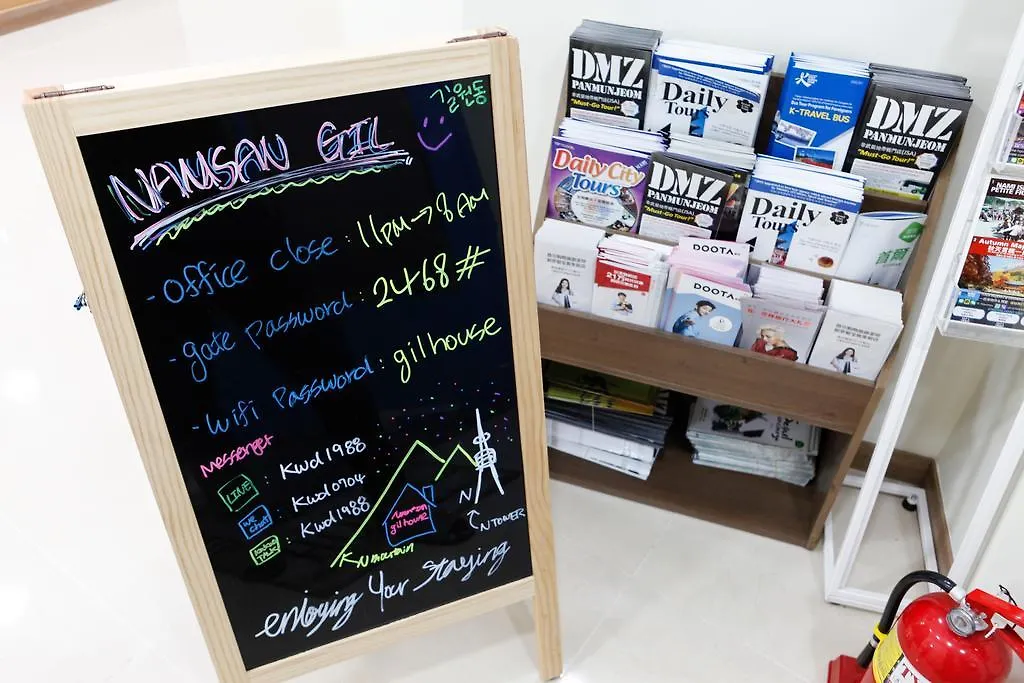 길원동
NAMSAN GIL
- office close : 11pm → 8AM
- gate password : 2468#
- wifi password : gilhouse
messenger
LINE : Kwd1988
we chat : Kwd0704
KAKAO TALK : Kwd1988
namsan gilhouse
N
N TOWER
N mountain
enjoying Your Staying
DMZ
PANMUNJEOM
"Must-Go Tour!"
Daily
Tours
Bus Tour Program for Foreigners
K-TRAVEL BUS
DMZ
PANMUNJEOM
"Must-Go Tour!"
Daily City
Tours
DMZ
PANMUNJEOM
"Must-Go Tour!"
Daily
Tours
首爾
DOOTA
DOOTA
NAMI IS
PETITE FR
Autumn Ma